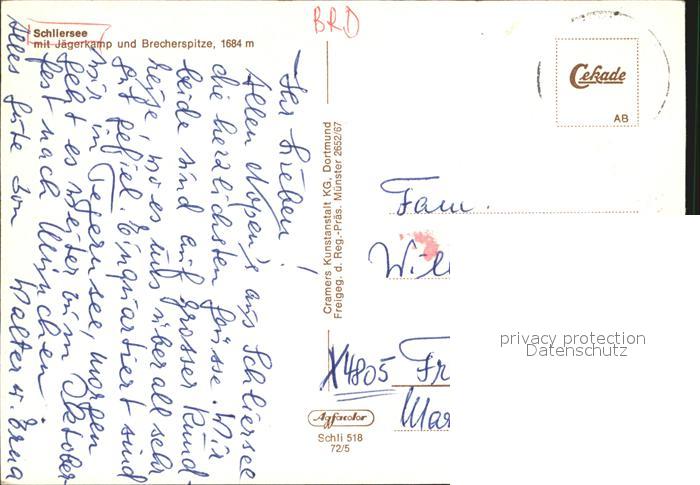 BRD
Schliersee
mit Jägerkamp und Brecherspitze, 1684 m
Ihr Lieben!
Allen Nopen's aus Schliersee
die herzlichsten Grüsse. Wir
beide sind auf grosser Rund-
reise, wo es uns überall sehr
gut gefiel. Einquartiert sind
wir in Tegernsee, morgen
geht es weiter zum Oktober
fest nach München
Alles Gute von Walter u. Erna
Cramers Kunstanstalt KG, Dortmund
Freigeg. d. Reg.-Präs. Münster 2652/67
Cekade
AB
Fam.
Will
X4805 Fr
Mar
privacy protection
Datenschutz
Agfacolor
Schli 518
72/5